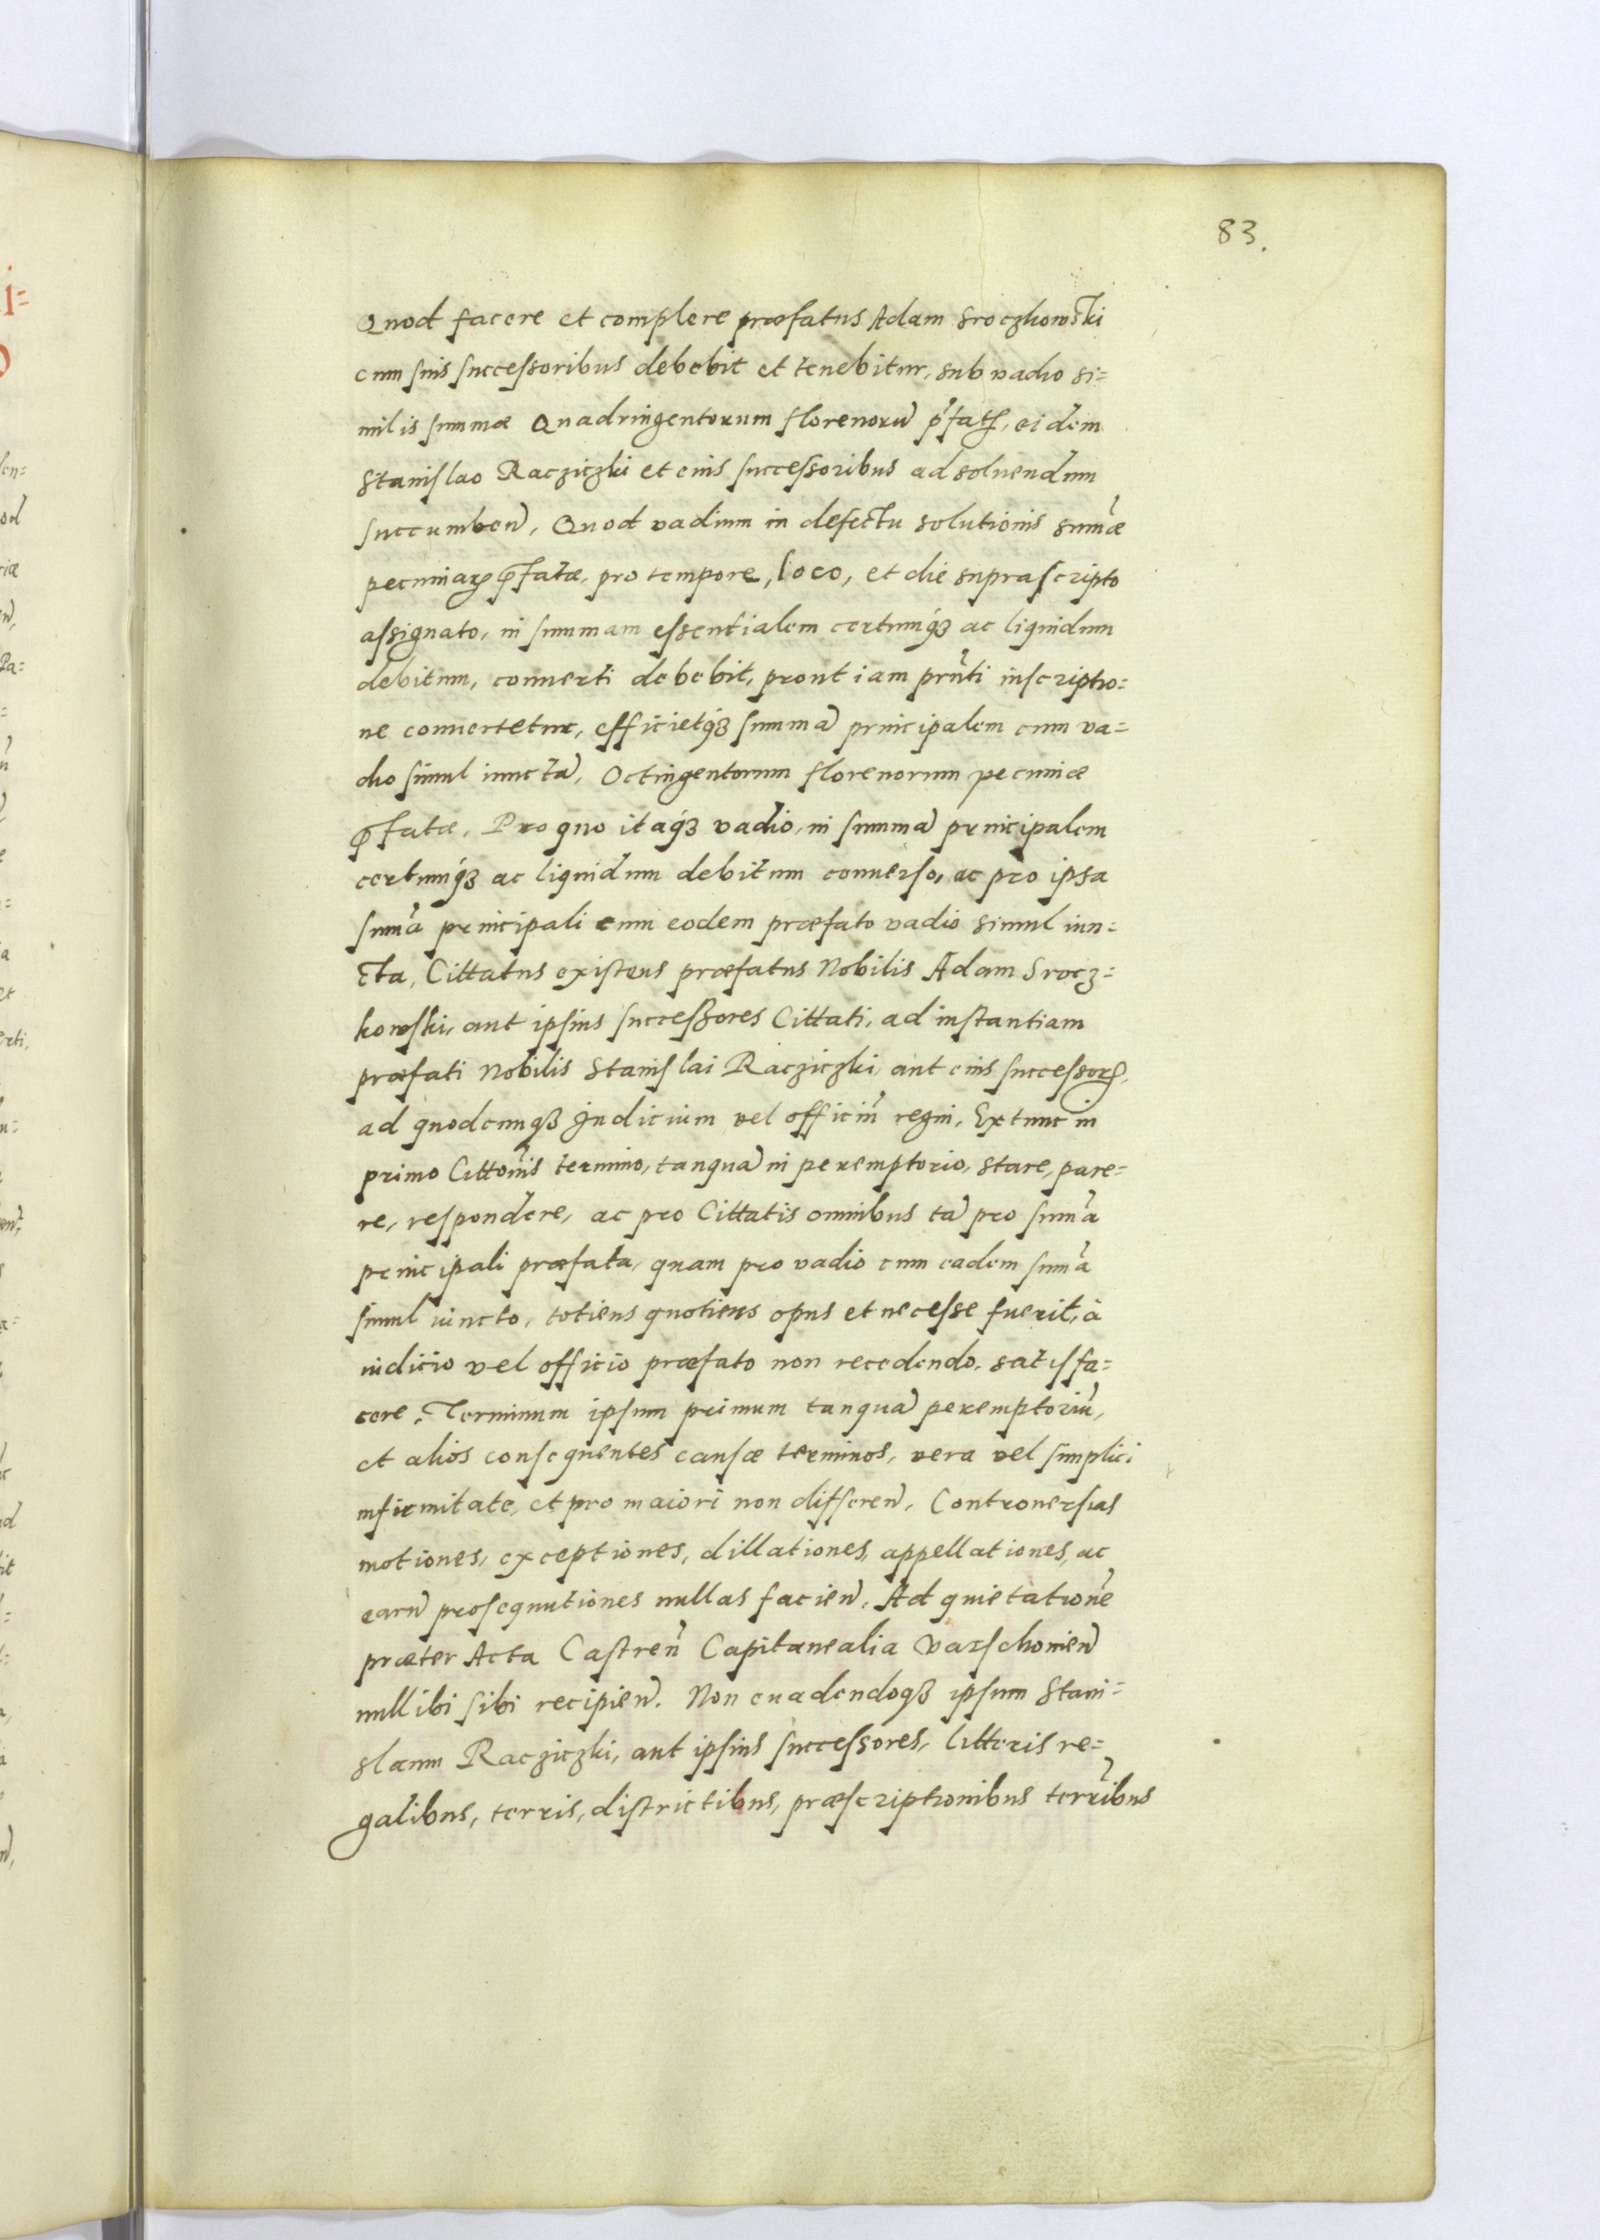 83.
Quod facere et complere præfatus Adam Sroczkowski
cum suis successoribus debebit et tenebitur, sub vadio si=
milis summæ Quadringentorum florenorū p̄fatꝭ, eidem
Stanislao Racziczki et eius successoribus ad soluendum
succumbeñ, Quod vadium in defectu solutionis sum̄æ
pecuniaꝝ p̄fatæ, pro tempore, loco, et die suprascripto
assignato, in summam essentialem certumqꝫ ac liquidum
debitum, conuerti debebit, prout iam prn̄ti inscriptio=
ne conuertetur, efficietqꝫ summā principalem cum va=
dio simul iunctā, Octingentorum florenorum pecuniæ
p̄fatæ. Pro quo itaqꝫ vadio, in summā principalem
certumqꝫ ac liquidum debitum conuerso, ac pro ipsa
sum̄a principali cum eodem præfato vadio simul iun=
cta, Cittatus existens præfatus Nobilis Adam Srocz=
kowski, aut ipsius successores Cittati, ad instantiam
præfati Nobilis Stanislai Racziczki, aut eius successorꝭ,
ad quodcunqꝫ Judicium vel officiū regni, Extunc in
primo Citto͂nis termino, tanquā in peremptorio, stare, pare=
re, respondere, ac pro Cittatis omnibus tā pro sum̄a
principali præfata, quam pro vadio cum eadem sum̄a
simul iuncto, totiens quotiens opus et necesse fuerit, à
iudicio vel officio præfato non recedendo, satisfa=
cere. Terminum ipsum primum tanquā peremptoriū,
et alios consequentes causæ terminos, vera vel simplici
infirmitate, et pro maiori non differeñ, Controuersias
motiones, exceptiones, dillationes, appellationes, ac
earū prosequutiones nullas facieñ, Ad quietationē
præter Acta Castreñ Capitanealia Varschouieñ
nullibi sibi recipieñ. Non euadendoqꝫ ipsum Stani=
slaum Racziczki, aut ipsius successores, litteris re=
galibus, terris, districtibus, præscriptionibus terr̄ibus